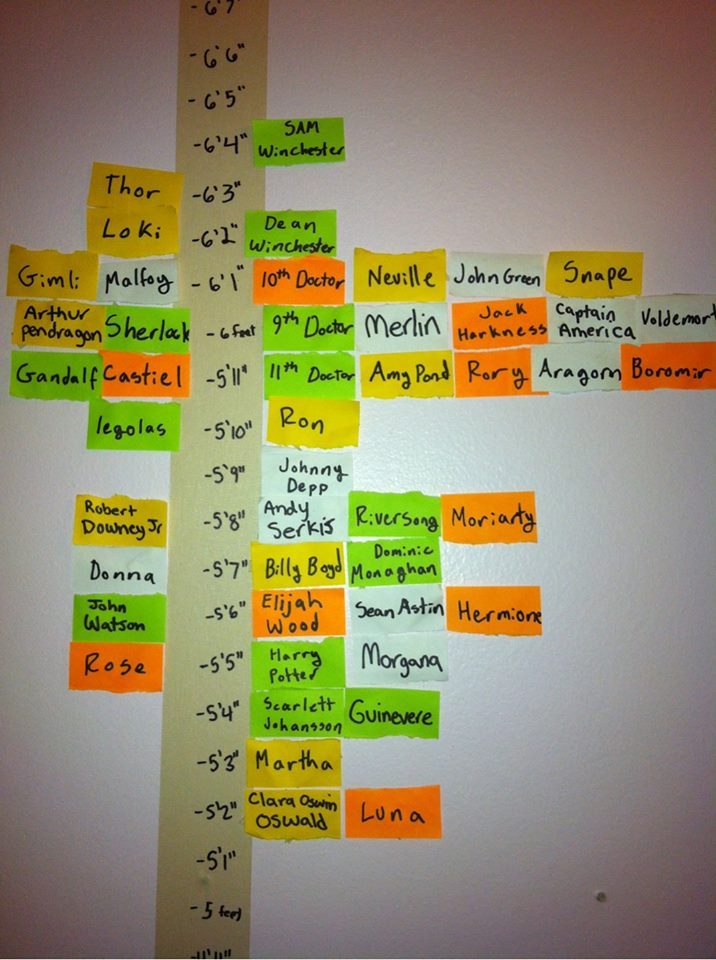 - 6'7"
- 6'6"
- 6'5"
- 6'4"
SAM
Winchester
Thor
- 6'3"
Loki
- 6'2"
Dean
Winchester
Gimli
Malfoy
- 6'1"
10th Doctor
Neville
John Green
Snape
Arthur
pendragon
Sherlock
- 6 feet
9th Doctor
Merlin
Jack
Harkness
Captain
America
Voldemort
Gandalf
Castiel
- 5'11"
11th Doctor
Amy Pond
Rory
Aragorn
Boromir
legolas
- 5'10"
Ron
- 5'9"
Johnny
Depp
Robert
Downey Jr
- 5'8"
Andy
Serkis
Riversong
Moriarty
Donna
- 5'7"
Billy Boyd
Dominic
Monaghan
John
Watson
- 5'6"
Elijah
Wood
Sean Astin
Hermione
Rose
- 5'5"
Harry
Potter
Morgana
- 5'4"
Scarlett
Johansson
Guinevere
- 5'3"
Martha
- 5'2"
Clara Oswin
Oswald
Luna
- 5'1"
- 5 feet